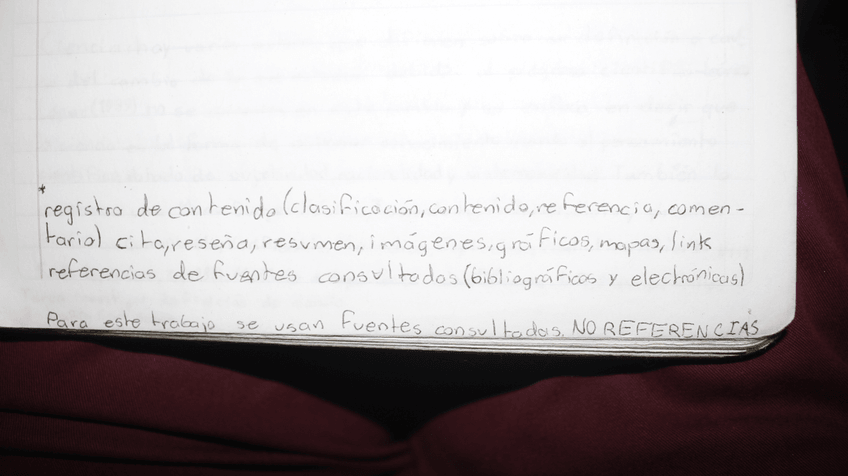 *
registro de contenido (clasificación, contenido, referencia, comen-
tario) cita, reseña, resumen, imágenes, gráficos, mapas, link
referencias de fuentes consultadas (bibliográficas y electrónicas)
Para este trabajo se usan fuentes consultadas. NO REFERENCIAS